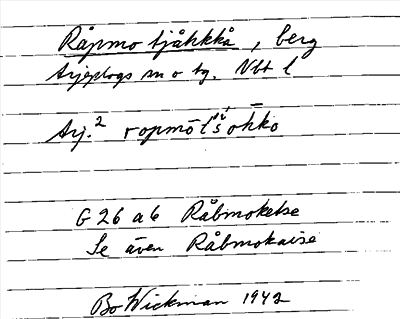 Råpmo tjåhkkå, berg
Arjeplogs sn o tg. Vbt l
Arj.² ropmō t́'š́ ok̄ko
G 26 a 6 Råbmokelse
Se även Råbmokaise
Bo Wickman 1942